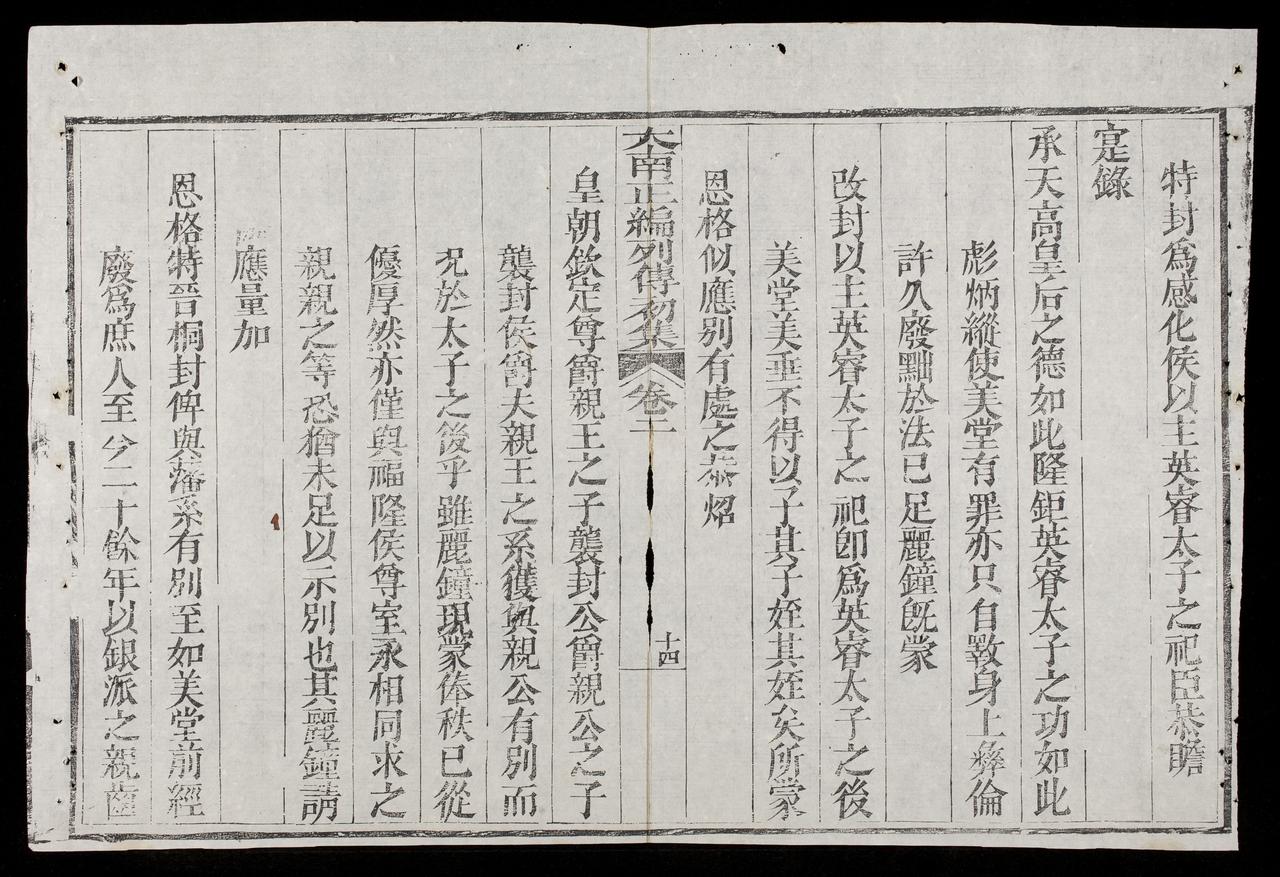 特封爲感化侯以主英睿太子之祀臣恭瞻
寔錄
承天高皇后之德如此隆鉅英睿太子之功如此
彪炳縱使美堂有罪亦只自斁身上彜倫
許久廢黜於法已足麗鐘旣蒙
改封以主英睿太子之祀卽爲英睿太子之後
美堂美垂不得以子其子姪其姪矣所蒙
恩格似應别有處之恭炤
大南正編列傳初集 卷二 十四
皇朝欽定尊爵親王之子襲封公爵親公之子
襲封侯爵夫親王之系獲與親公有別而
况於太子之後乎雖麗鐘現蒙俸秩已從
優厚然亦僅與福隆侯尊室永相同求之
親親之等恐猶未足以示別也其麗鐘請
應量加
恩格特晉桐封俾與藩系有別至如美堂前經
廢爲庶人至今二十餘年以銀派之親齒